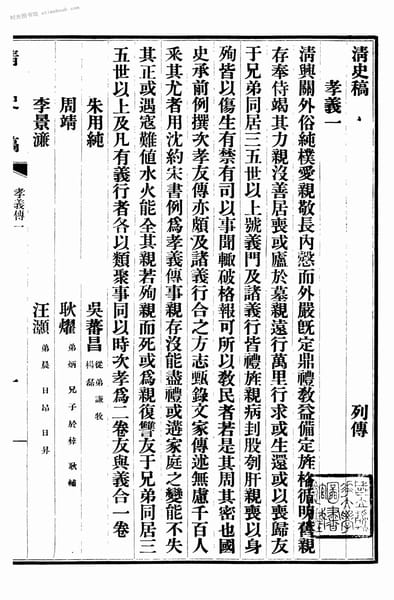 清史稿
列傳
孝義一
清興關外俗純樸愛親敬長內愨而外嚴既定鼎禮敎益備定旌格循明舊親
存奉侍竭其力親沒善居喪或廬於墓親遠行萬里行求或生還或以喪歸友
于兄弟同居三五世以上號義門及諸義行皆禮旌親病刲股刳肝親喪以身
殉皆以傷生有禁有司以事聞輒破格報可所以敎民者若是其周其密也國
史承前例撰次孝友傳亦頗及諸義行合之方志甄錄文家傳述無慮千百人
釆其尤者用沈約宋書例爲孝義傳事親存沒能盡禮或遘家庭之變能不失
其正或遇寇難值水火能全其親若殉親而死或爲親復讐友于兄弟同居三
五世以上及凡有義行者各以類聚事同以時次孝爲二卷友與義合一卷
朱用純
吳蕃昌 從弟謙牧 楊磊
周靖
耿燿 弟炳 兄子於梓 耿輔
李景濂
汪灝 弟晨 日昂 日昇
清史稿
孝義傳一
一